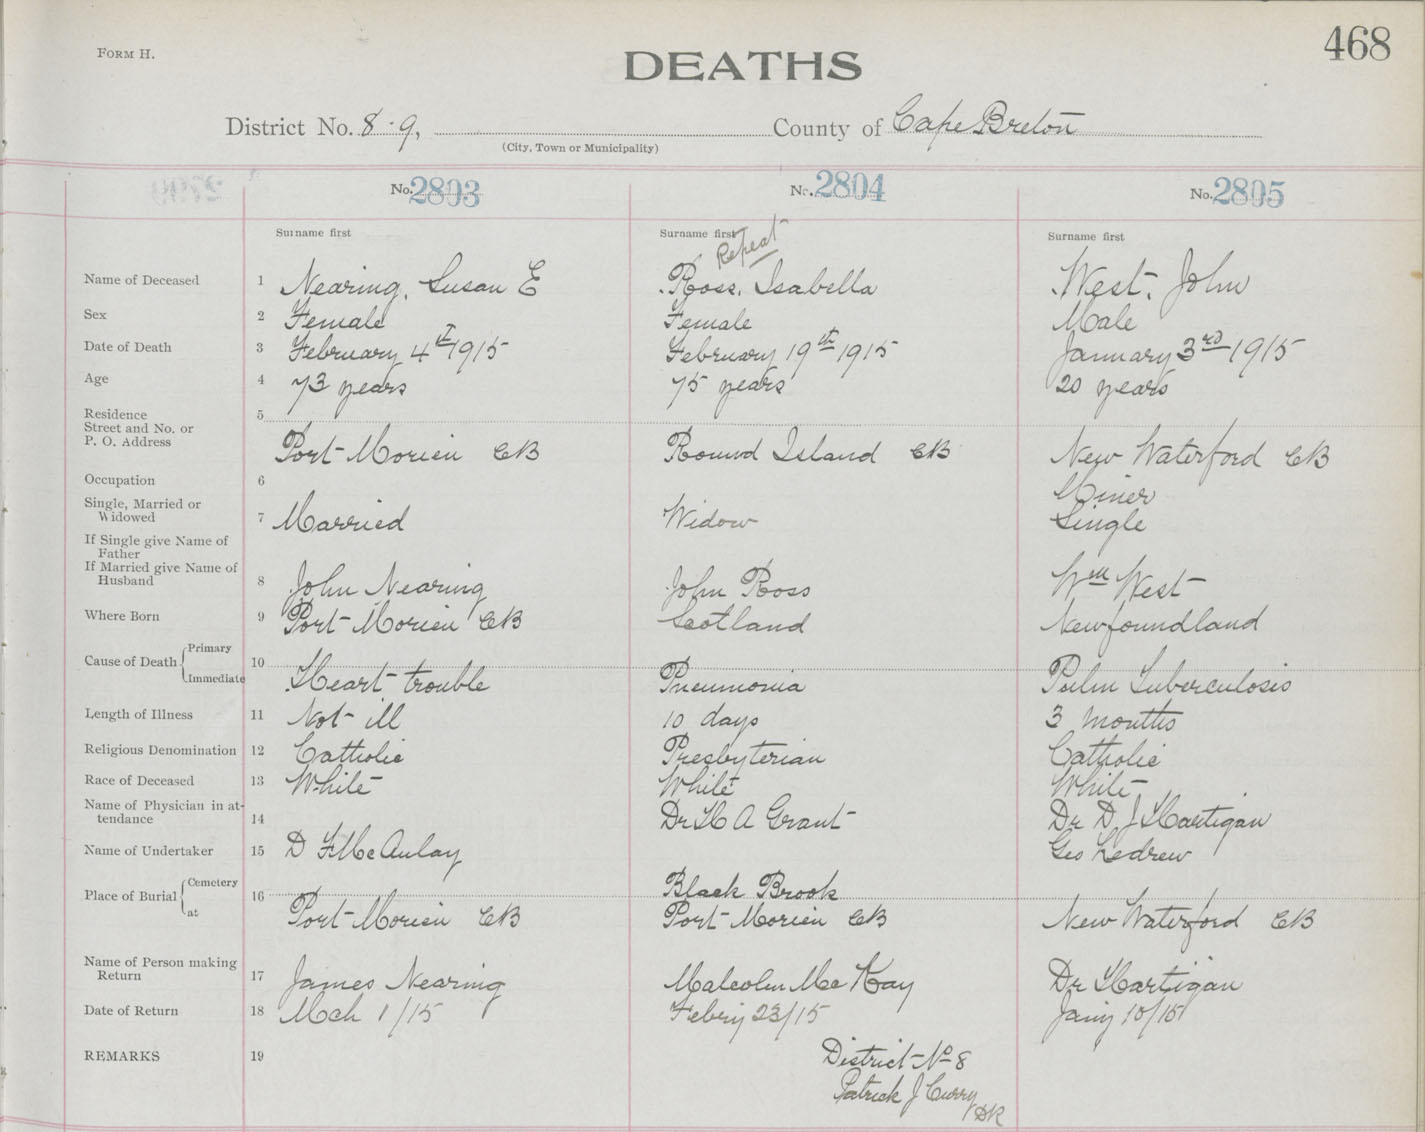 FORM H.
468
DEATHS
District No. 8 · 9, County of Cape Breton
(City, Town or Municipality)
No. 2803 No. 2804 No. 2805
Surname first Surname first Surname first
Repeat
Name of Deceased 1 Nearing, Susan E Ross, Isabella West, John
Sex 2 Female Female Male
Date of Death 3 February 4th 1915 February 19th 1915 January 3rd 1915
Age 4 73 years 75 years 20 years
Residence 5
Street and No. or
P. O. Address Port Morien CB Round Island CB New Waterford CB
Occupation 6 Miner
Single, Married or
Widowed 7 Married Widow Single
If Single give Name of
Father
If Married give Name of
Husband 8 John Nearing John Ross Wm West
Where Born 9 Port Morien CB Scotland Newfoundland
Cause of Death { Primary 10
Immediate Heart trouble Pneumonia Pulm Tuberculosis
Length of Illness 11 Not ill 10 days 3 months
Religious Denomination 12 Catholic Presbyterian Catholic
Race of Deceased 13 White White White
Name of Physician in at-
tendance 14 Dr H A Grant Dr D J Hartigan
Name of Undertaker 15 D F McAulay Geo Ledrew
Place of Burial { Cemetery 16 Black Brook
at Port Morien CB Port Morien CB New Waterford CB
Name of Person making
Return 17 James Nearing Malcolm McKay Dr Hartigan
Date of Return 18 Mch 1/15 Febry 23/15 Jany 10/15
REMARKS 19 District No 8
Patrick J Curry
DR